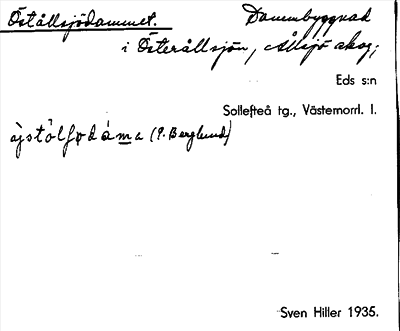 Östållsjödammet. Dammbyggnad
i Österållsjön, Ållsjö skog;
Eds s:n
Sollefteå tg., Västernorrl. l.
(P. Berglund)
Sven Hiller 1935.